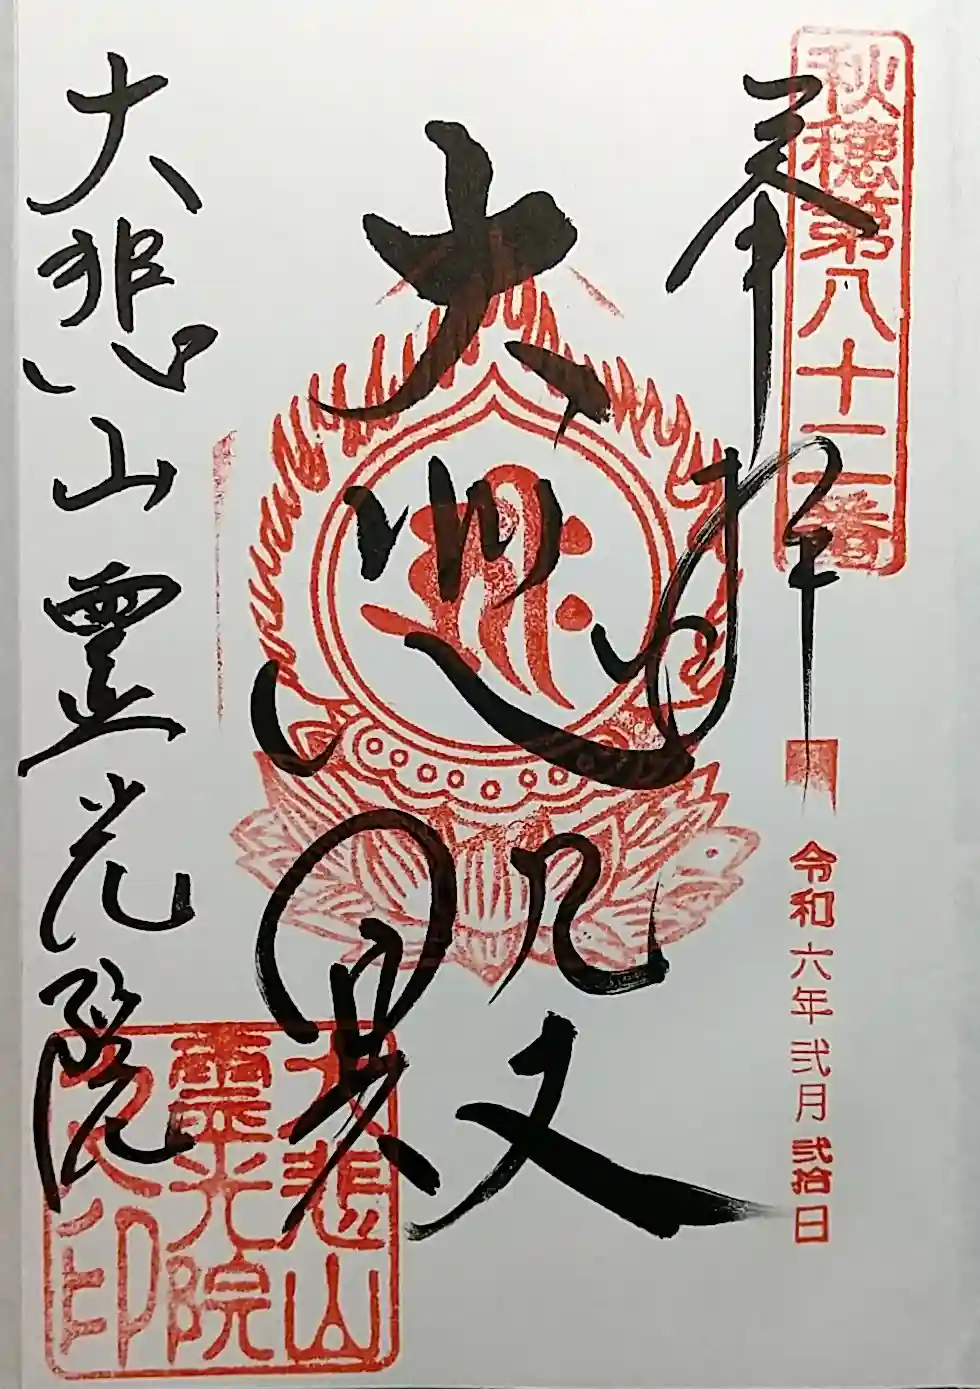 秋穂第八十二番
奉拝
令和六年弐月弐拾日
大悲殿
大悲山霊光院
大悲山
靈光院
之印